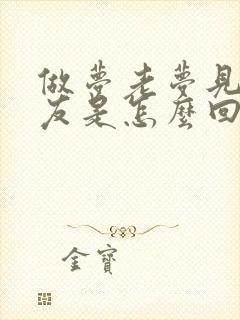 做夢老夢見
友是怎麼回
金寶